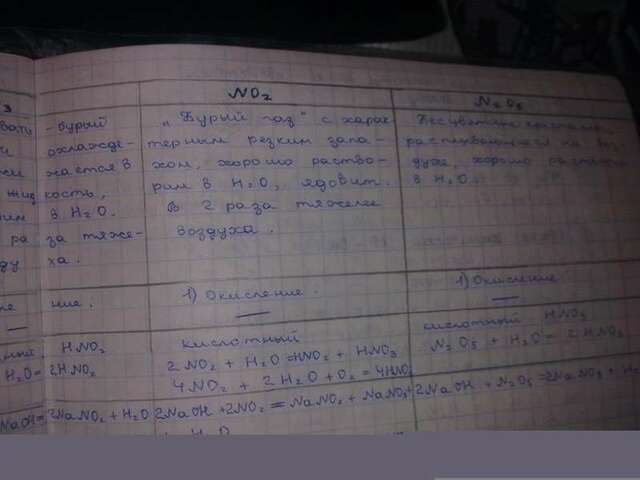 NO₂
N₂O₅
- бурый
охлажде-
жается в
кость,
в H₂O.
ра за тяже-
ха.
„Бурый газ" с харак
терным резким запа-
хом, хорошо раство-
рим в H₂O, ядовит.
В 2 раза тяжелее
воздуха.
Бесцветные
расплывающиеся на
духе, хорошо
в H₂O.
ние.
1) Окисление.
1) Окисление
HNO₂
H₂O = 2HNO₂
кислотный
2NO₂ + H₂O = HNO₂ + HNO₃
4NO₂ + 2H₂O + O₂ = 4HNO₃
кислотный HNO₃
N₂O₅ + H₂O = 2HNO₃
NaOH = 2NaNO₂ + H₂O
2NaOH + 2NO₂ = NaNO₂ + NaNO₃ +
2NaOH + N₂O₅ = 2NaNO₃ + H₂